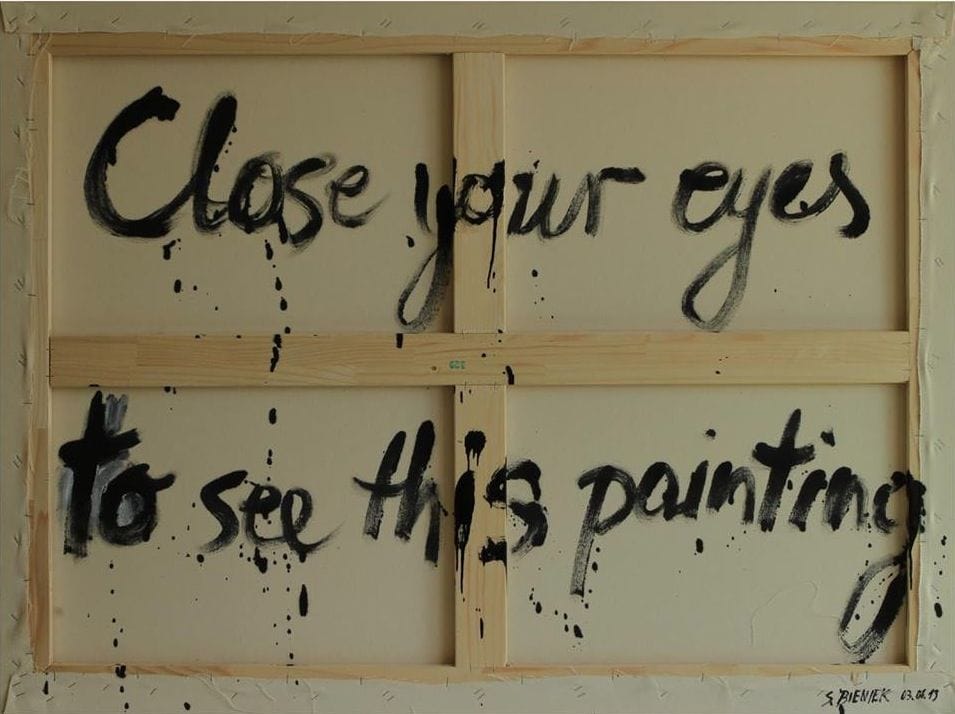 Close your eyes
to see this painting
S. BIENIEK 03.04.13